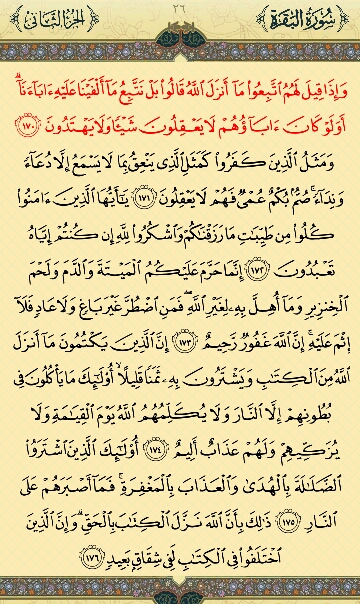 الجزء الثاني ٢٦ سورة البقرة
وَإِذَا قِيلَ لَهُمُ ٱتَّبِعُوا۟ مَآ أَنزَلَ ٱللَّهُ قَالُوا۟ بَلْ نَتَّبِعُ مَآ أَلْفَيْنَا عَلَيْهِ ءَابَآءَنَآ ۗ
أَوَلَوْ كَانَ ءَابَآؤُهُمْ لَا يَعْقِلُونَ شَيْـًٔا وَلَا يَهْتَدُونَ ١٧٠
وَمَثَلُ ٱلَّذِينَ كَفَرُوا۟ كَمَثَلِ ٱلَّذِى يَنْعِقُ بِمَا لَا يَسْمَعُ إِلَّا دُعَآءً
وَنِدَآءً ۚ صُمٌّۢ بُكْمٌ عُمْىٌ فَهُمْ لَا يَعْقِلُونَ ١٧١ يَـٰٓأَيُّهَا ٱلَّذِينَ ءَامَنُوا۟
كُلُوا۟ مِن طَيِّبَـٰتِ مَا رَزَقْنَـٰكُمْ وَٱشْكُرُوا۟ لِلَّهِ إِن كُنتُمْ إِيَّاهُ
تَعْبُدُونَ ١٧٢ إِنَّمَا حَرَّمَ عَلَيْكُمُ ٱلْمَيْتَةَ وَٱلدَّمَ وَلَحْمَ
ٱلْخِنزِيرِ وَمَآ أُهِلَّ بِهِۦ لِغَيْرِ ٱللَّهِ ۖ فَمَنِ ٱضْطُرَّ غَيْرَ بَاغٍ وَلَا عَادٍ فَلَآ
إِثْمَ عَلَيْهِ ۚ إِنَّ ٱللَّهَ غَفُورٌ رَّحِيمٌ ١٧٣ إِنَّ ٱلَّذِينَ يَكْتُمُونَ مَآ أَنزَلَ
ٱللَّهُ مِنَ ٱلْكِتَـٰبِ وَيَشْتَرُونَ بِهِۦ ثَمَنًا قَلِيلًا ۙ أُو۟لَـٰٓئِكَ مَا يَأْكُلُونَ فِى
بُطُونِهِمْ إِلَّا ٱلنَّارَ وَلَا يُكَلِّمُهُمُ ٱللَّهُ يَوْمَ ٱلْقِيَـٰمَةِ وَلَا
يُزَكِّيهِمْ وَلَهُمْ عَذَابٌ أَلِيمٌ ١٧٤ أُو۟لَـٰٓئِكَ ٱلَّذِينَ ٱشْتَرَوُا۟
ٱلضَّلَـٰلَةَ بِٱلْهُدَىٰ وَٱلْعَذَابَ بِٱلْمَغْفِرَةِ ۚ فَمَآ أَصْبَرَهُمْ عَلَى
ٱلنَّارِ ١٧٥ ذَٰلِكَ بِأَنَّ ٱللَّهَ نَزَّلَ ٱلْكِتَـٰبَ بِٱلْحَقِّ ۗ وَإِنَّ ٱلَّذِينَ
ٱخْتَلَفُوا۟ فِى ٱلْكِتَـٰبِ لَفِى شِقَاقٍۭ بَعِيدٍ ١٧٦